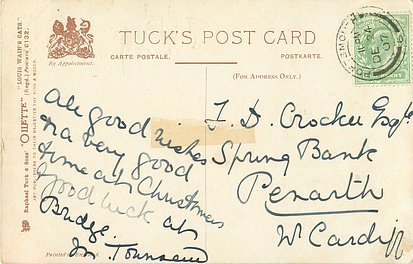 TUCK'S POST CARD
CARTE POSTALE. POSTKARTE.
(FOR ADDRESS ONLY.)
By Appointment.
"LOUIS WAIN'S CATS."
Raphael Tuck & Sons' "OILETTE" [Regd.] Postcard, C132.
ART PUBLISHERS TO THEIR MAJESTIES THE KING & QUEEN.
PORTSMOUTH
DE
07
All good wishes
for a very good
time at Christmas
Good luck at
Bridge.
M. Townsend
J. D. Crocker Esqre
Spring Bank
Penarth
Nr Cardiff
Printed in